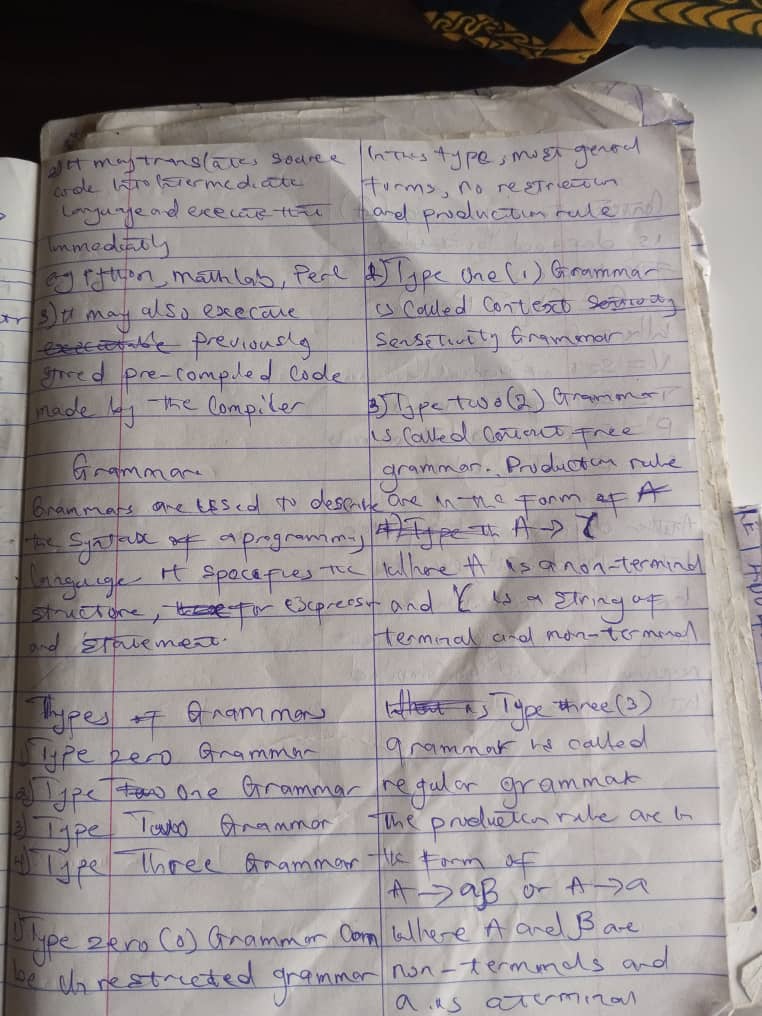 2) It may translates source
code into intermediate
language and execute this
immediatly
eg python, mathlab, Perl
3) It may also execute
executable previously
stored pre-compiled code
made by the Compiler
Grammar
Grammars are used to describe
the syntax of a programmig
language It specifies the
structure, for expression
and statement.
Types of Grammars
1) Type zero Grammar
2) Type two one Grammar
3) Type Two Grammar
4) Type Three Grammar
1) Type zero (0) Grammar Can
be Unrestricted grammar
In this type, most general
forms, no restriction
and production rule
2) Type One (1) Grammar
is Called Context
Sensetivity Grammar
3) Type two (2) Grammar
is Called Context free
grammar. Production rule
are in the form of A
4) Type th A → γ
Where A is a non-terminal
and γ is a string of
terminal and non-terminal
is Type three (3)
grammar is called
regular grammar
The production rule are in
the form of
A → aB or A → a
Where A and B are
non-terminals and
a is a terminal